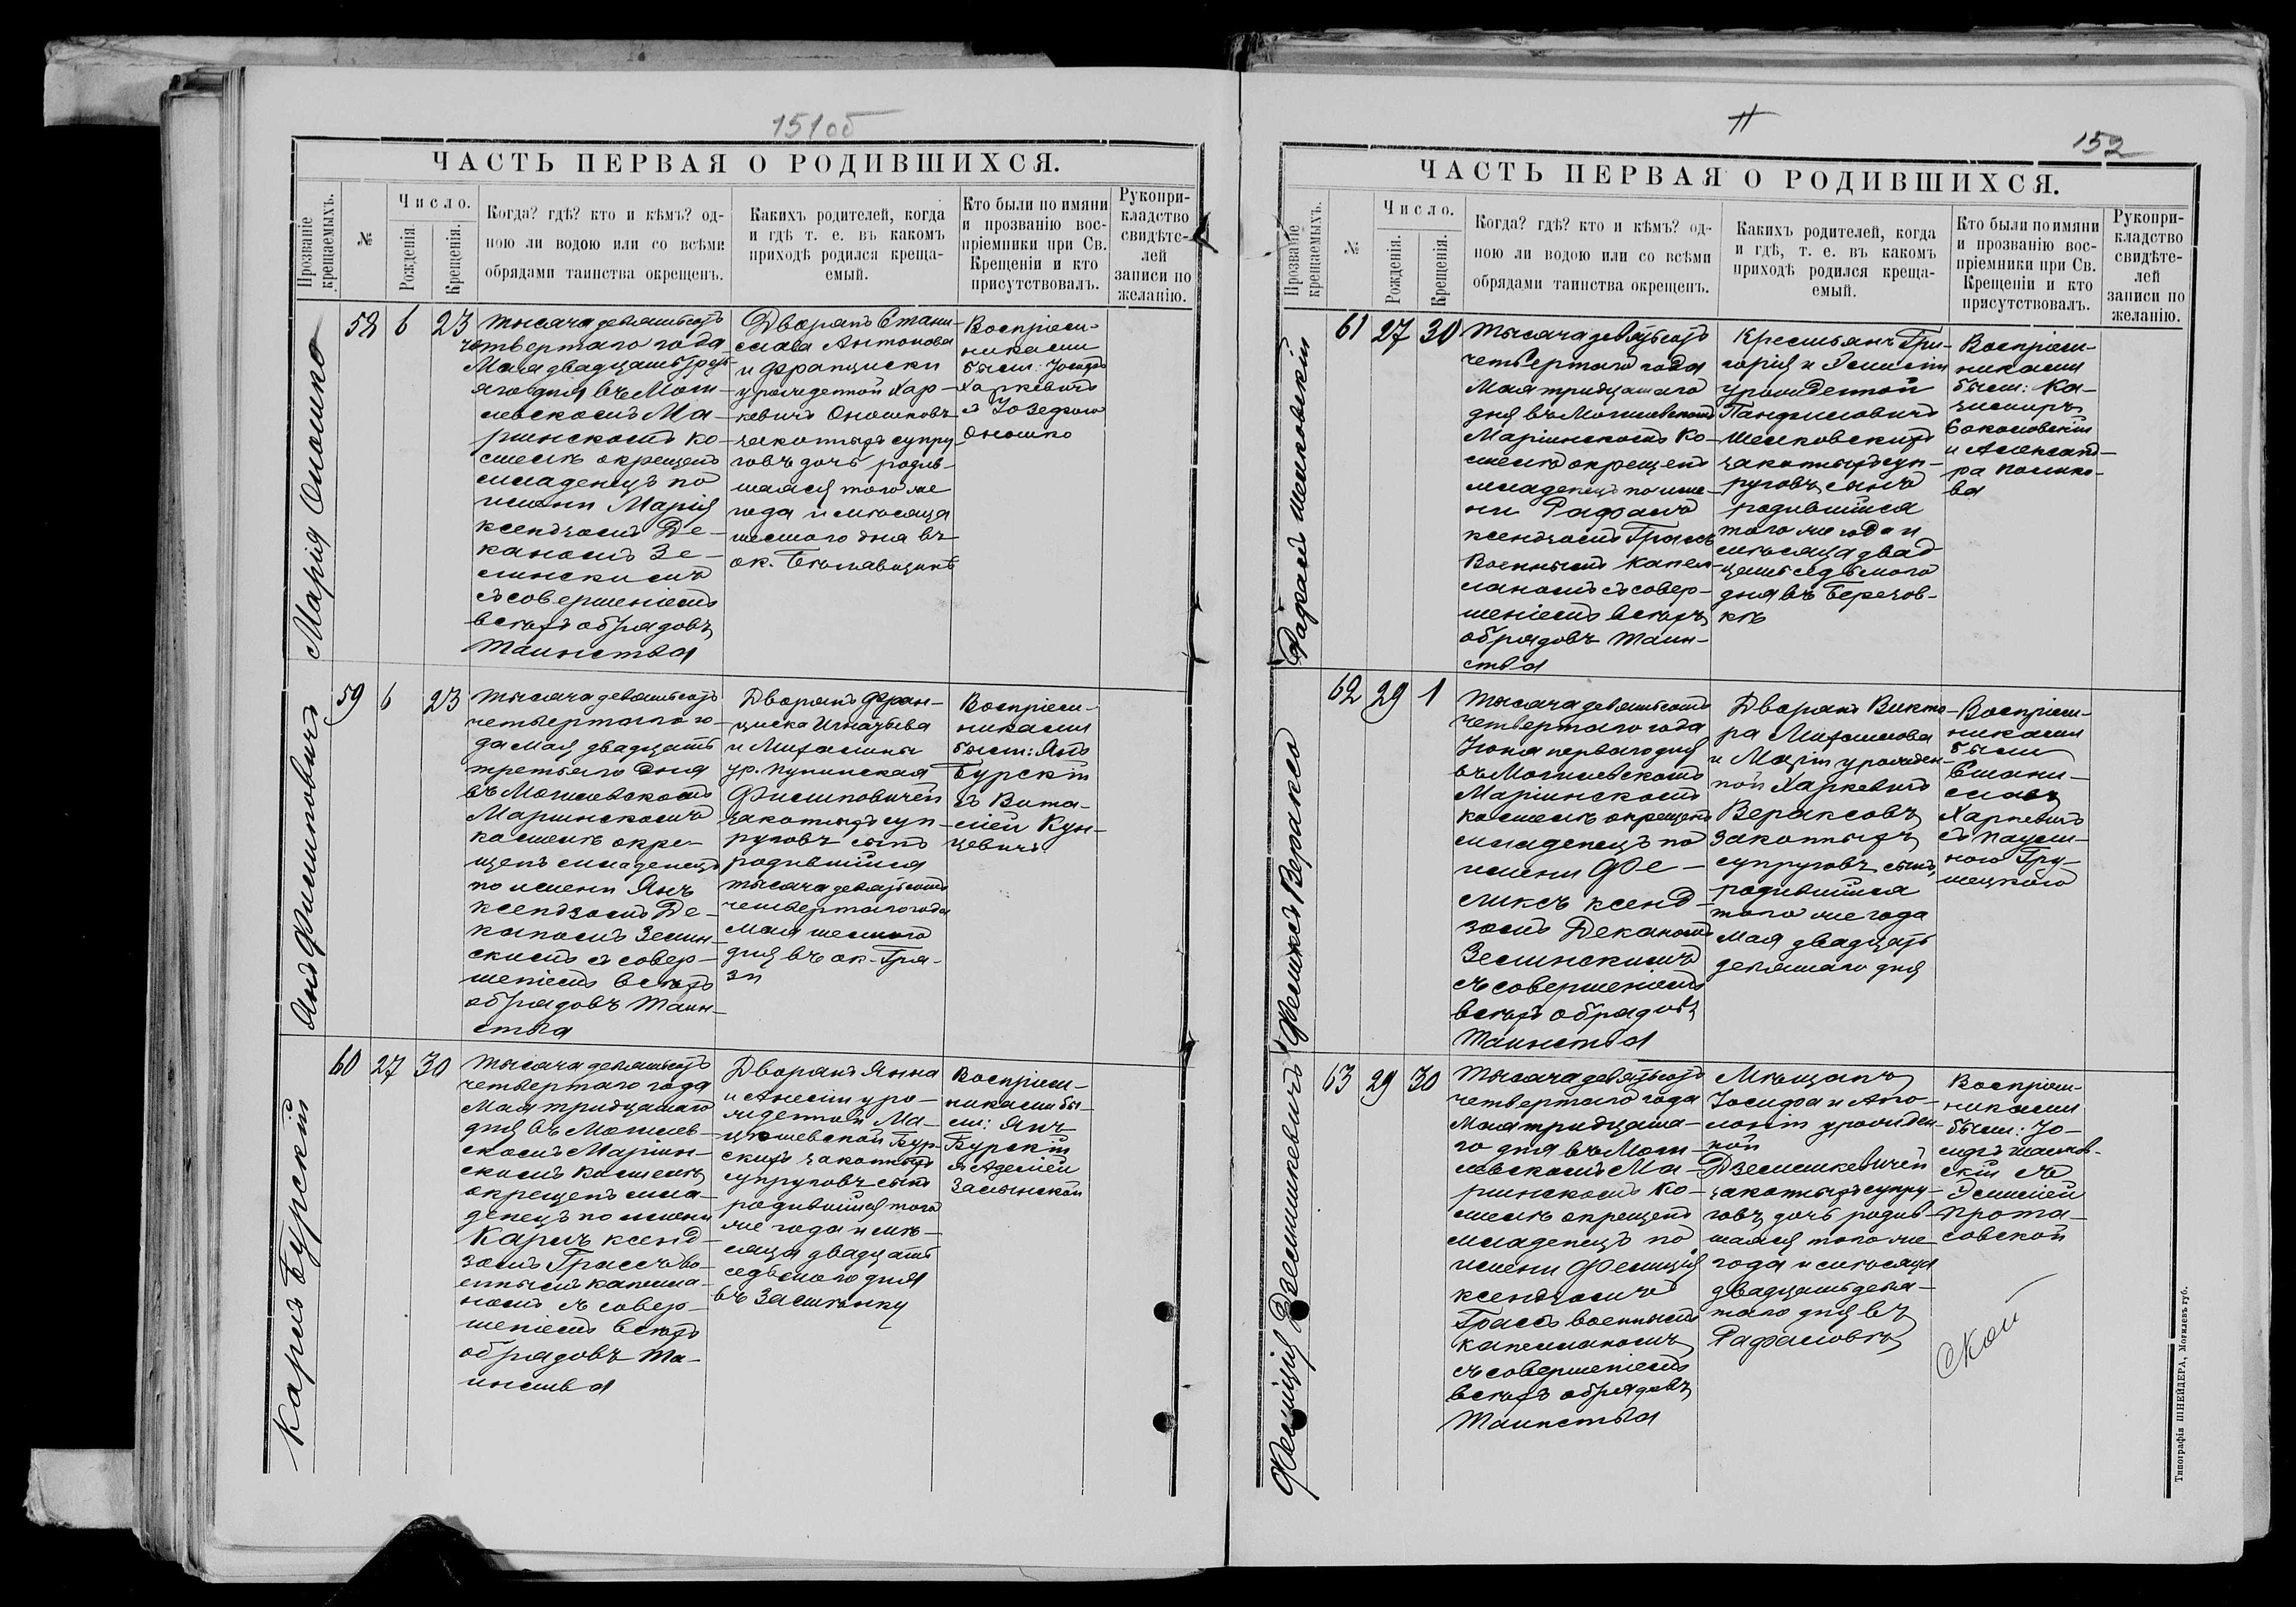 151об
ЧАСТЬ ПЕРВАЯ О РОДИВШИХСЯ.
Прозваніе крещаемыхъ.
№
Число.
Рожденія.
Крещенія.
Когда? гдѣ? кто и кѣмъ? од-
ною ли водою или со всѣми
обрядами таинства окрещенъ.
Какихъ родителей, когда
и гдѣ т. е. въ какомъ
приходѣ родился креща-
емый.
Кто были по имяни
и прозванію вос-
пріемники при Св.
Крещеніи и кто
присутствовалъ.
Рукопри-
кладство
свидѣте-
лей
записи по
желанію.
Марія Оношко
58 6 23
Тысяча девятьсотъ
четвертаго года
Мая двадцать треть-
яго дня въ Моги-
левскомъ Ма-
ріинскомъ ко-
стелѣ окрещенъ
младенецъ по
имени Марія
ксендзомъ Де-
каномъ Зе-
линскимъ
съ совершеніемъ
всѣхъ обрядовъ
Таинства
Дворянъ Стани-
слава Антонова
и Францишки
урожденной Хар-
кевичъ Оношковъ
законныхъ супру
говъ дочь родив-
шаяся того же
года и мѣсяца
шестого дня въ
ок.
Воспріем-
никами
были: Іосифъ
Харкевичъ
съ Іозефою
Оношко
Янъ Филиповичъ
59 6 23
Тысяча девятьсотъ
четвертаго го-
да мая двадцать
третьяго дня
въ Могилевскомъ
Маріинскомъ
костелѣ окре-
щенъ младенецъ
по имени Янъ
ксендзомъ Де-
каномъ Зелин-
скимъ съ совер-
шеніемъ всѣхъ
обрядовъ Таин-
ства
Дворянъ Фран-
циска Игнатьева
и Михалины
ур.
Филиповичей
законныхъ суп-
руговъ сынъ
родившійся
тысяча девятьсотъ
четвертаго года
мая шестого
дня въ ок. Гря-
зи
Воспріем-
никами
были: Янъ
Бурскій
съ Вита-
ліей Кун-
цевичъ
Карлъ Бурскій
60 27 30
Тысяча девятьсотъ
четвертаго года
Мая тридцатаго
дня въ Могилев-
скомъ Маріин-
скомъ костелѣ
окрещенъ мла-
денецъ по имени
Карлъ ксенд-
зомъ Грассъ во-
еннымъ капелла-
номъ съ совер-
шеніемъ всѣхъ
обрядовъ Та-
инства
Дворянъ Янна
и Анеліи уро-
жденной Ма-
цкошевской Бур-
скихъ законныхъ
супруговъ сынъ
родившійся того
же года и мѣ-
сяца двадцать
седьмого дня
въ Застѣнку
Воспріем-
никами бы-
ли: Янъ
Бурскій
съ Аделіей
Залынской
11
152
ЧАСТЬ ПЕРВАЯ О РОДИВШИХСЯ.
Прозваніе крещаемыхъ.
№
Число.
Рожденія.
Крещенія.
Когда? гдѣ? кто и кѣмъ? од-
ною ли водою или со всѣми
обрядами таинства окрещенъ.
Какихъ родителей, когда
и гдѣ, т. е. въ какомъ
приходѣ родился креща-
емый.
Кто были по имяни
и прозванію вос-
пріемники при Св.
Крещеніи и кто
присутствовалъ.
Рукопри-
кладство
свидѣте-
лей
записи по
желанію.
Рафаилъ Шелковскій
61 27 30
Тысяча девятьсотъ
четвертаго года
Мая тридцатаго
дня въ Могилевскомъ
Маріинскомъ Ко-
стелѣ окрещенъ
младенецъ по име-
ни Рафаилъ
ксендзомъ Грассъ
Военнымъ капел-
ланомъ съ совер-
шеніемъ всѣхъ
обрядовъ Таин-
ства
Крестьянъ Гри-
горія и Эмиліи
урожденной
Панфиловичъ
Шелковскихъ
законныхъ суп-
руговъ сынъ
родившійся
того же года и
мѣсяца двад-
цать седьмого
дня въ Березов-
кѣ
Воспріем-
никами
были: Ка-
зимиръ
Соколовскій
и Александ-
ра Поляко-
ва
Феликсъ Веракса
62 29 1
Тысяча девятьсотъ
четвертаго года
Іюня перваго дня
въ Могилевскомъ
Маріинскомъ
костелѣ окрещенъ
младенецъ по
имени Фе-
ликсъ ксенд-
зомъ Деканомъ
Зелинскимъ
съ совершеніемъ
всѣхъ обрядовъ
Таинства
Дворянъ Викто-
ра Михаилова
и Маріи урожден-
ной Харкевичъ
Вераксовъ
законныхъ
супруговъ сынъ,
родившійся
того же года
Мая двадцать
девятаго дня
Воспріем-
никами
были
Стани-
славъ
Харкевичъ
съ Паули-
ною Гру-
шецкою
Фелиція Дзелишкевичъ
63 29 30
Тысяча девятьсотъ
четвертаго года
Мая тридцата-
го дня въ Моги-
левскомъ Ма-
ріинскомъ ко-
стелѣ окрещенъ
младенецъ по
имени Фелиція
ксендзомъ
Грассъ военнымъ
капелланомъ
съ совершеніемъ
всѣхъ обрядовъ
Таинства
Мѣщанъ
Іосифа и Апо-
лоніи урожден-
ной
Дзелишкевичей
законныхъ супру-
говъ дочь родив-
шаяся того же
года и мѣсяца
двадцать девя-
таго дня въ
Рафаловѣ
Воспріем-
никами
были: Іо-
сифъ
скій съ
Эмиліей
Прота-
совской
Типографія ШНЕЙДЕРА, Могилевъ губ.